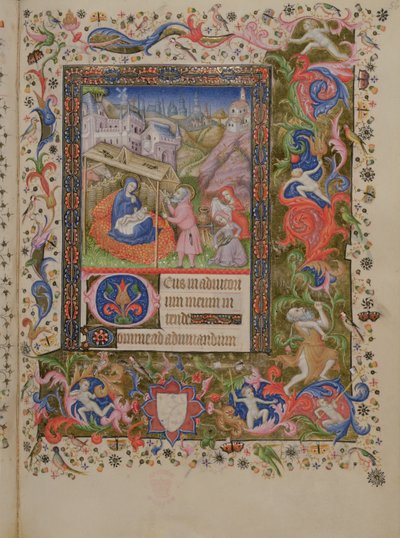 Deus in adiutori
um meum in
tende
Domine ad adiuvandum